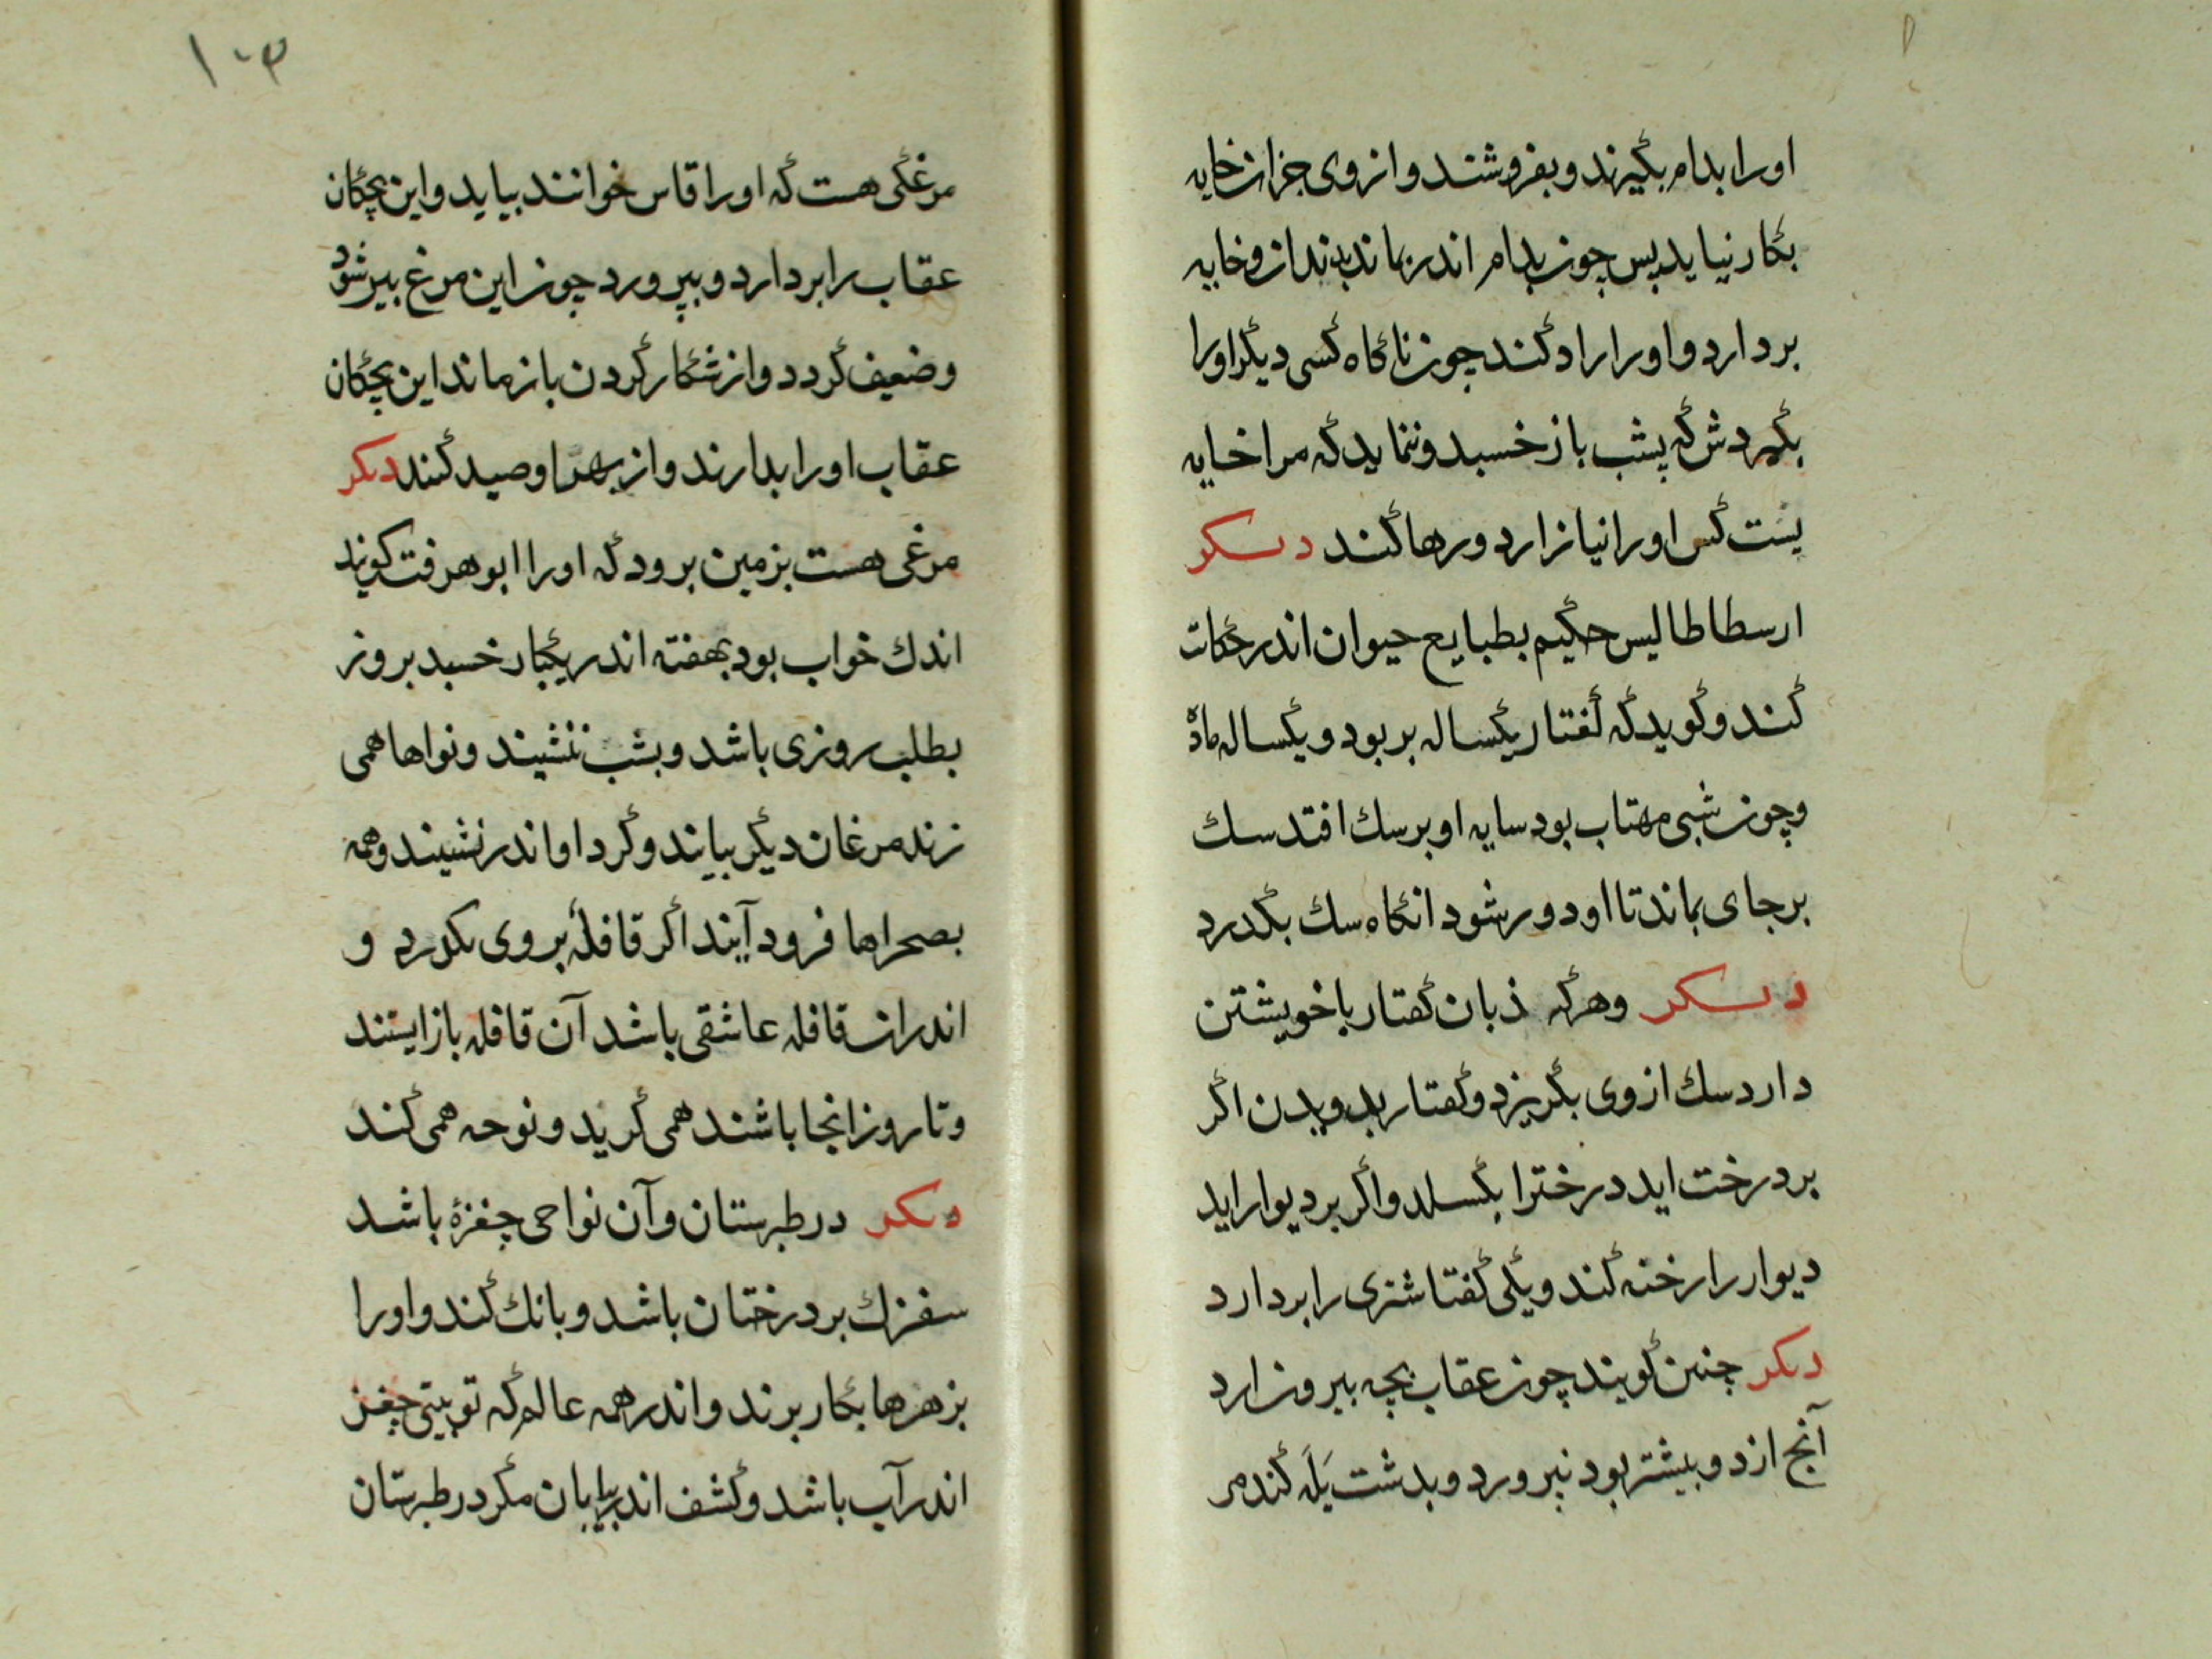 اورا بدام بگیرند و بفروشند و از وی جز ان خایه
بکار نیاید پس چون بدام اندر بماند بدندان خایه
بردارد و اورا راد کند چون ناگاه کسی دیگر اورا
بگیردش که پشب باز خسبد و ننماید که مرا خایه
نیست کس اورا نیازارد و رها کند دیگر
ارسطاطالیس حکیم بطبایع حیوان اندر حکات
کند و گوید که کفتار یکساله بر بود و یکساله ماده
و چون شبی مهتاب بود سایه او بر سك افتد سك
بر جای بماند تا او دور شود انگاه سك بگدرد
دیگر وهرکه ذبان کفتار با خویشتن
دارد سك از وی بگریزد و کفتار بدویدن اگر
بر درخت اید درخترا بگسلد و اگر بر دیوار اید
دیوار را رخنه کند و یکی کفتا شتری را بردارد
دیگر چنین گویند چون عقاب بچه بیرون ارد
آنچ از دو بیشتر بود نپرورد و بدشت یَلَه کند مر
۱۰۳
مرغکی هست که اورا قاس خوانند بیاید و این بچگان
عقاب را بردارد و بپرورد چون این مرغ بیر شود
و ضعیف گردد و از شکار کردن باز ماند این بچگان
عقاب اورا بدارند و از بهر او صید کنند دیگر
مرغی هست بزمین برود که اورا ابوهرفت گویند
اندك خواب بود بهفته اندر یکبار خسبد بروز
بطلب روزی باشد و بشب ننشیند و نواها همی
زند مرغان دیگر بیایند و گرد او اندر نشیند و همه
بصحراها فرود آیند اگر قافلهٔ بر وی بگذرد و
اندران قافله عاشقی باشد آن قافله باز ایستند
و تا روز انجا باشند همی گرید و نوحه همی کند
دیگر در طبرستان و آن نواحی چغزهٔ باشد
سفزك بر درختان باشد و بانك کند و اورا
بزهرها بکار برند و اندر همه عالم که تو بینی چغز
اندر آب باشد و کشف اندر بیابان مگر در طبرستان